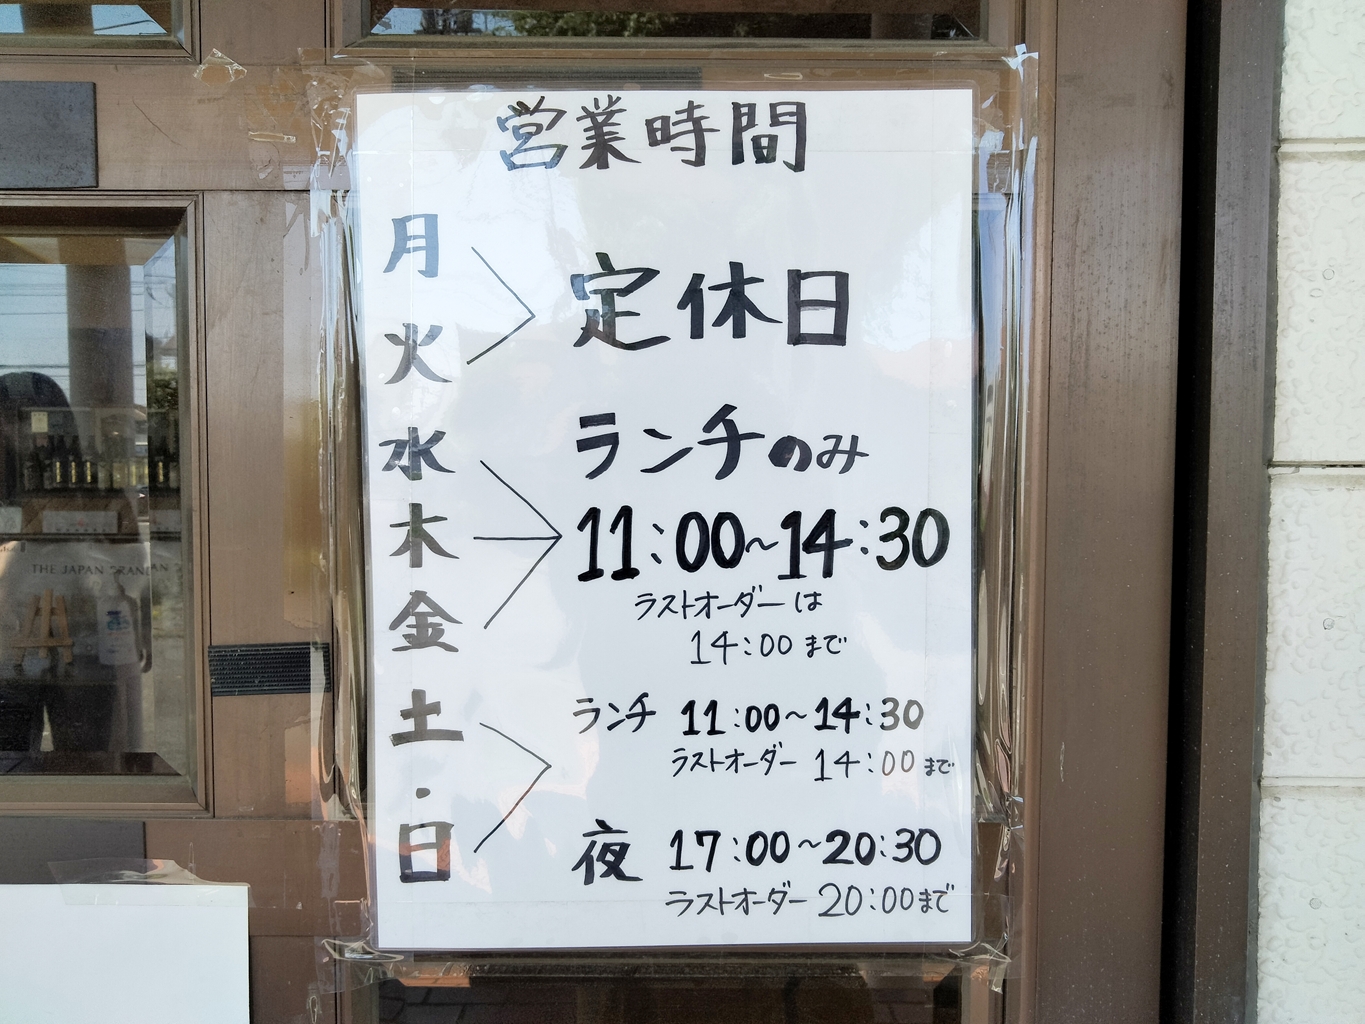 営業時間
月
火
定休日
水
木
金
ランチのみ
11:00~14:30
ラストオーダーは
14:00まで
土
・
日
ランチ 11:00~14:30
ラストオーダー 14:00まで
夜 17:00~20:30
ラストオーダー 20:00まで
THE JAPAN